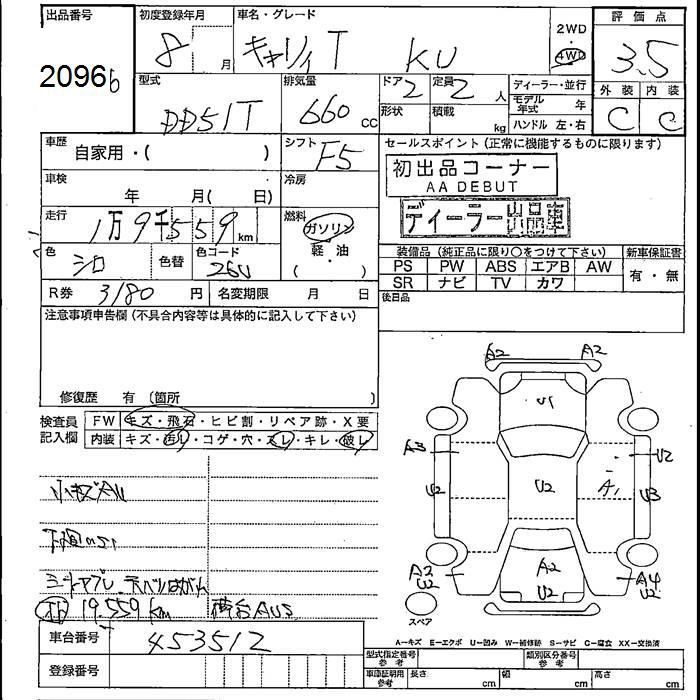 出品番号 初度登録年月 車名・グレード 2WD 評価点
8 月 キャリイ T KU ・4WD 3.5
20966
型式 排気量 ドア 2 定員 2 人 ディーラー・並行 外装 内装
DD51T 660 CC 形状 積載 kg モデル年式 年 C C
ハンドル 左・右
車歴 自家用・( ) シフト F5 セールスポイント(正常に機能するものに限ります)
初出品コーナー
AA DEBUT
車検 年 月( 日) 冷房
ディーラー出品車
走行 1万9千559km 燃料 ガソリン
軽・油
( )
色 シロ 色替 色コード 26U
装備品(純正品に限り○をつけて下さい) 新車保証書
PS PW ABS エアB AW 有・無
SR ナビ TV カワ
R券 3180 円 名変期限 月 日 後日品
注意事項申告欄(不具合内容等は具体的に記入して下さい)
修復歴 有 (箇所 )
検査員 FW キズ・飛石・ヒビ割・リペア跡・X要
記入欄 内装 キズ・汚レ・コゲ・穴・スレ・キレ・破レ
A2 A2
U1
U2
U2 U2 A1 U3
A2 A2 A4
U2 U2 U2
小キズAU
19.559km
スペア
A―キズ E―エクボ U―凹み W―補修跡 S―サビ C―腐食 XX―交換済
車台番号 453512
型式指定番号 参考 類別区分番号 参考
登録番号
車庫証明用 参考 長さ cm 幅 cm 高さ cm